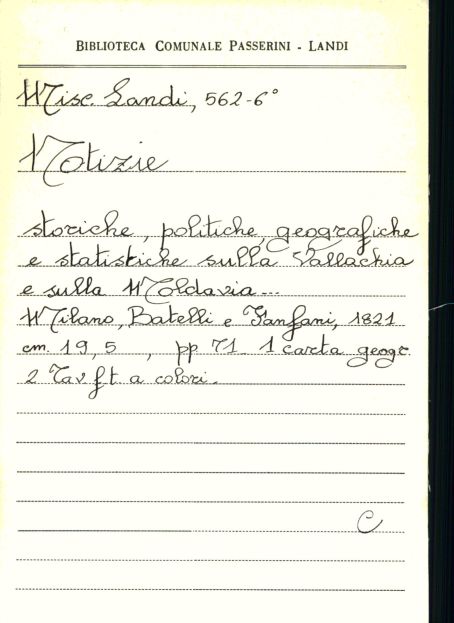 BIBLIOTECA COMUNALE PASSERINI - LANDI
Misc. Landi, 562-6°
Notizie
storiche, politiche, geografiche
e statistiche sulla Vallachia
e sulla Moldavia...
Milano, Batelli e Fanfani, 1821
cm. 19,5 , pp 71. 1 carta geogr.
2 Tav. f. t. a colori.
C